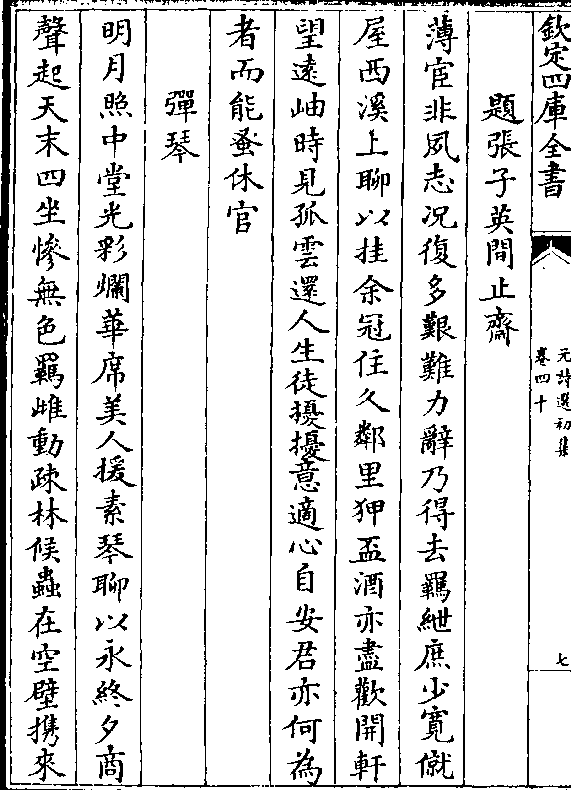 欽定四庫全書
元詩選初集
卷四十
七
題張子英間止齋
薄宦非夙志况復多艱難力辭乃得去羈紲庶少寛僦
屋西溪上聊以挂余冠住久鄰里狎盃酒亦盡歡開軒
望遠岫時見孤雲還人生徒擾擾意適心自安君亦何為
者而能蚤休官
彈琴
明月照中堂光彩爛華席美人援素琴聊以永終夕商
聲起天末四坐慘無色羈雌動疎林候蟲在空壁携來